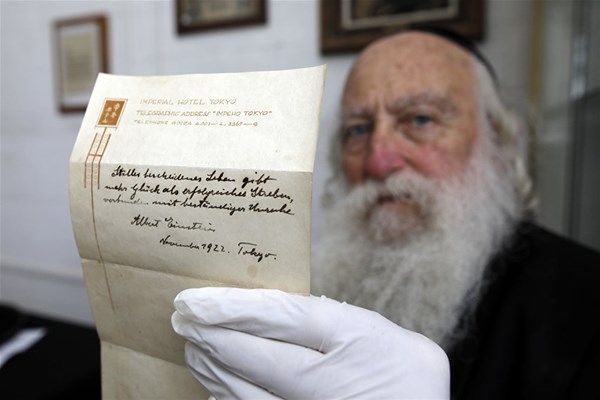 IMPERIAL HOTEL TOKYO
TELEGRAPHIC ADDRESS "IMPEHO TOKYO"
Stilles bescheidenes Leben gibt
mehr Glück als erfolgreiches Streben,
verbunden mit beständiger Unruhe.
Albert Einstein
November 1922. Tokyo.